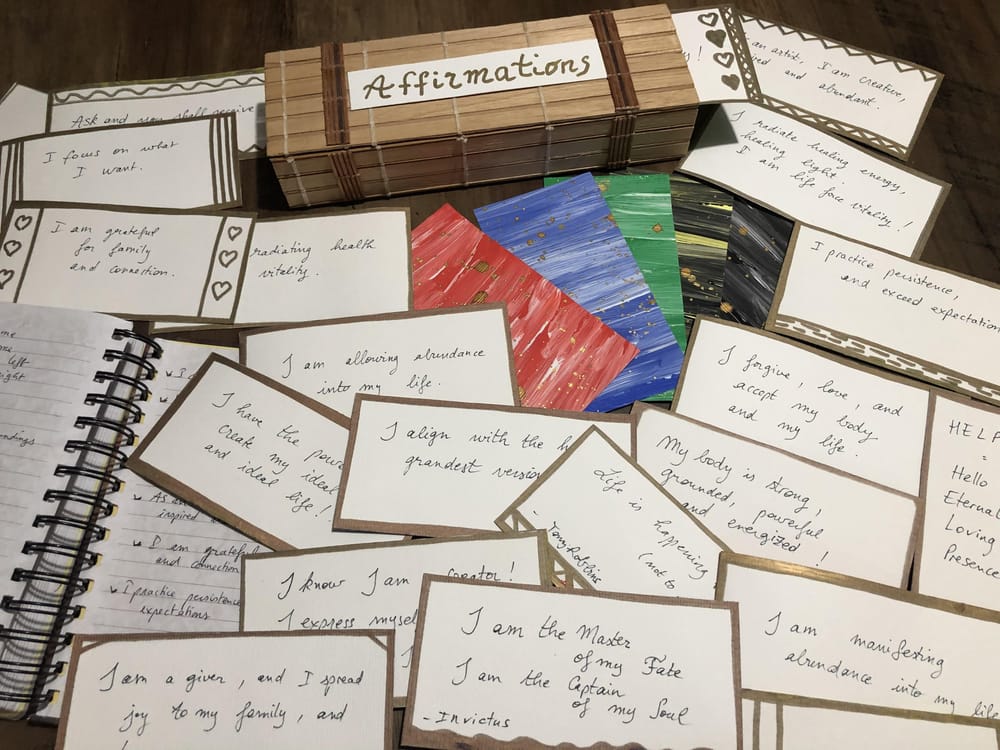 Affirmations
Ask and you shall receive
I focus on what
I want.
I am grateful
for family
and connection.
radiating health
vitality.
an artist, I am creative,
and
abundant.
I radiate healing energy,
healing light.
I am life force vitality!
I practice persistence,
and exceed expectation
I am allowing abundance
into my life.
I forgive, love, and
accept my body
and my life.
HELP
=
Hello
Eternal
Loving
Presence
I have the
Create my ideal
and ideal life!
I align with the
grandest version
My body is strong,
grounded, powerful
and energized!
Life is
happening
(not to
- Tony Robbins
me
left
As an
inspired
I am grateful
and connection
I practice persistence
expectations
I know I am creator!
I express myself
I am the Master
of my Fate
I am the Captain
of my Soul
- Invictus
I am manifesting
abundance into my life
I am a giver, and I spread
joy to my family, and